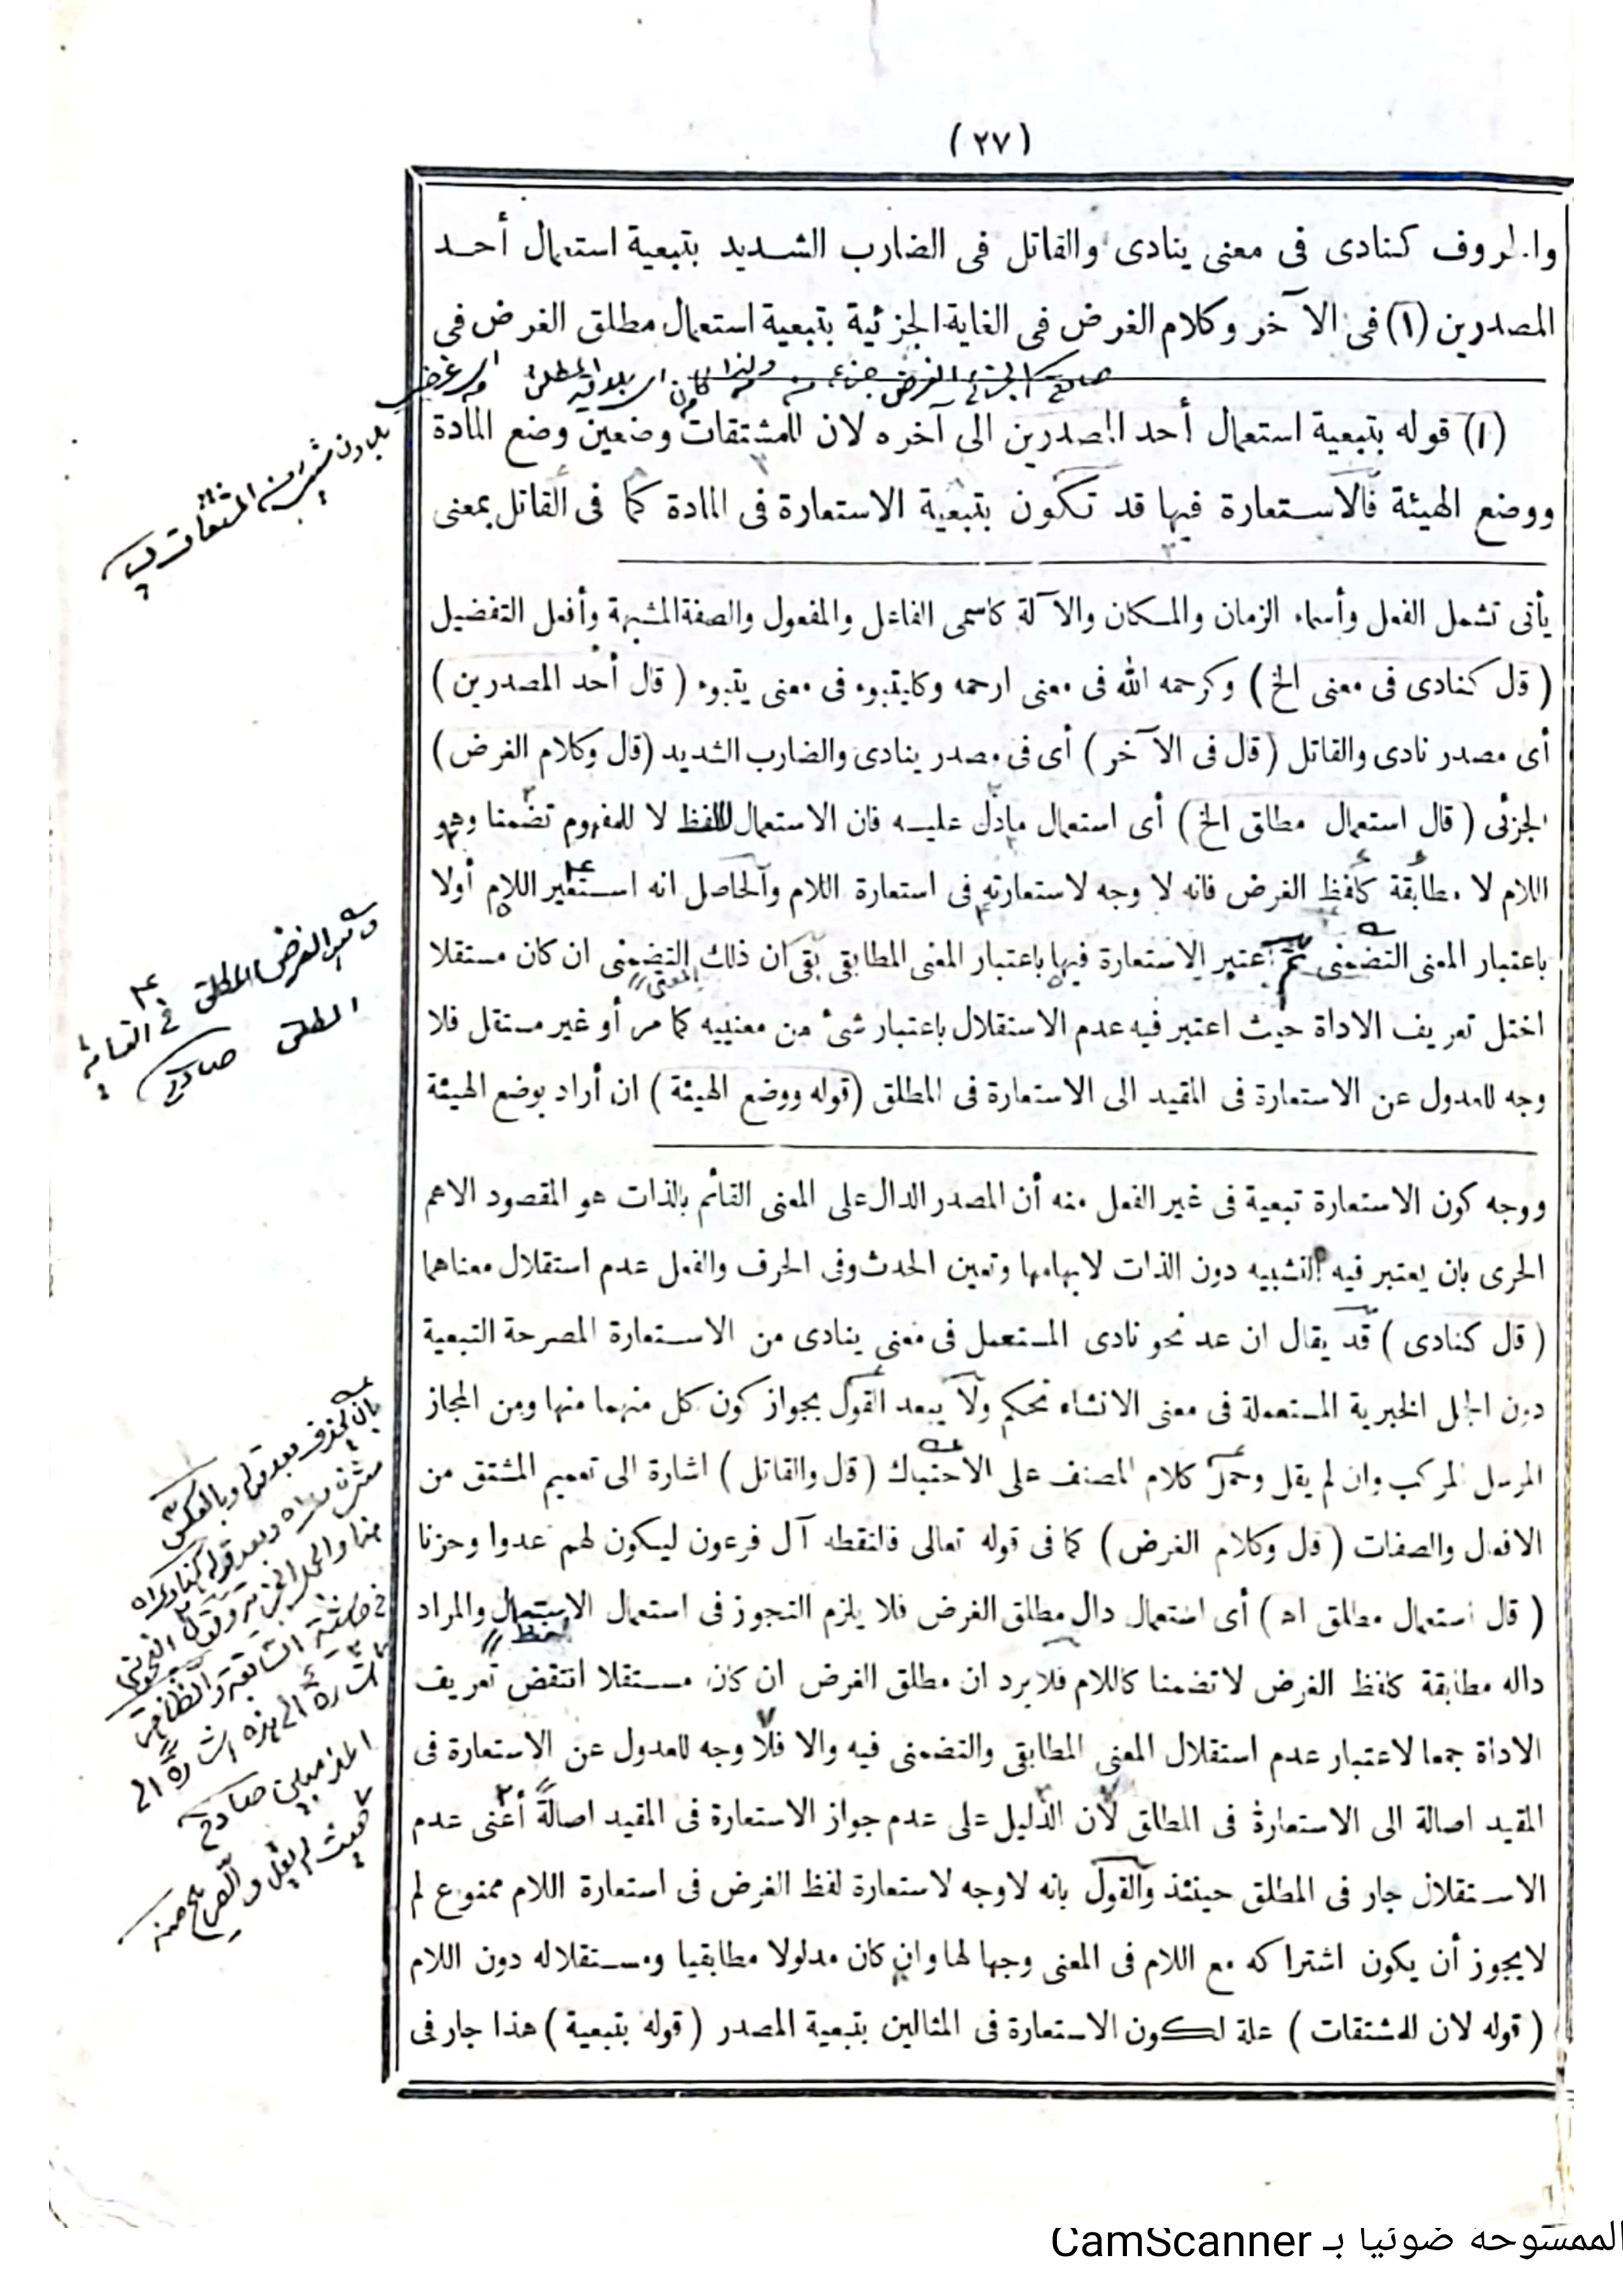 (٢٧)
والحروف كنادى فى معنى ينادى والقاتل فى الضارب الشديد بتبعية استعمال أحد
المصدرين (١) فى الآخر وكلام الغرض فى الغاية الجزئية بتبعية استعمال مطلق الغرض فى
(١) قوله بتبعية استعمال أحد المصدرين الى آخره لان للمشتقات وضعين وضع المادة
ووضع الهيئة فالاستعارة فيها قد تكون بتبعية الاستعارة فى المادة كما فى القاتل بمعنى
يأتى تشمل الفعل وأسماء الزمان والمكان والآلة كاسمى الفاعل والمفعول والصفة المشبهة وأفعل التفضيل
(قال كنادى فى معنى الخ) وكرحمه الله فى معنى ارحمه وكايتبوء فى معنى يتبوء (قال أحد المصدرين)
أى مصدر نادى والقاتل (قال فى الآخر) أى فى مصدر ينادى والضارب الشديد (قال وكلام الغرض)
الجزئى (قال استعمال مطلق الخ) أى استعمال مادل عليه فان الاستعمال للفظ لا للمفهوم تضمنا وهو
اللام لا مطابقة كلفظ الغرض فانه لا وجه لاستعارته فى استعارة اللام والحاصل انه استعير اللام أولا
باعتبار المعنى التضمنى ثم اعتبر الاستعارة فيها باعتبار المعنى المطابقى بقى ان ذلك التضمنى ان كان مستقلا
المعنى
اختل تعريف الاداة حيث اعتبر فيه عدم الاستقلال باعتبار شئ من معنييه كما مر أو غير مستقل فلا
وجه للعدول عن الاستعارة فى المقيد الى الاستعارة فى المطلق (قوله ووضع الهيئة) ان أراد بوضع الهيئة
ووجه كون الاستعارة تبعية فى غير الفعل منه أن المصدر الدال على المعنى القائم بالذات هو المقصود الاهم
الحرى بان يعتبر فيه التشبيه دون الذات لابهامها وتعين الحدث وفى الحرف والفعل عدم استقلال معناهما
(قال كنادى) قد يقال ان عد نحو نادى المستعمل فى معنى ينادى من الاستعارة المصرحة التبعية
دون الجمل الخبرية المستعملة فى معنى الانشاء تحكم ولا يبعد القول بجواز كون كل منهما منها ومن المجاز
المرسل المركب وان لم يقل وحمل كلام المصنف على الاحتباك (قال والقاتل) اشارة الى تعميم المشتق من
الافعال والصفات (قال وكلام الغرض) كما فى قوله تعالى فالتقطه آل فرعون ليكون لهم عدوا وحزنا
(قال استعمال مطلق اه) أى استعمال دال مطلق الغرض فلا يلزم التجوز فى استعمال الاستعمال والمراد
لفظ
داله مطابقة كلفظ الغرض لا تضمنا كاللام فلا يرد ان مطلق الغرض ان كان مستقلا انتقض تعريف
الاداة جمعا لاعتبار عدم استقلال المعنى المطابقى والتضمنى فيه والا فلا وجه للعدول عن الاستعارة فى
المقيد اصالة الى الاستعارة فى المطلق لان الدليل على عدم جواز الاستعارة فى المقيد اصالة أعنى عدم
الاستقلال جار فى المطلق حينئذ والقول بانه لاوجه لاستعارة لفظ الغرض فى استعارة اللام ممنوع لم
لايجوز أن يكون اشتراكه مع اللام فى المعنى وجها لها وان كان مدلولا مطابقيا ومستقلا له دون اللام
(قوله لان للمشتقات) علة لكون الاستعارة فى المثالين بتبعية المصدر (قوله بتبعية) هذا جار فى
الممسوحة ضوئيا بـ CamScanner